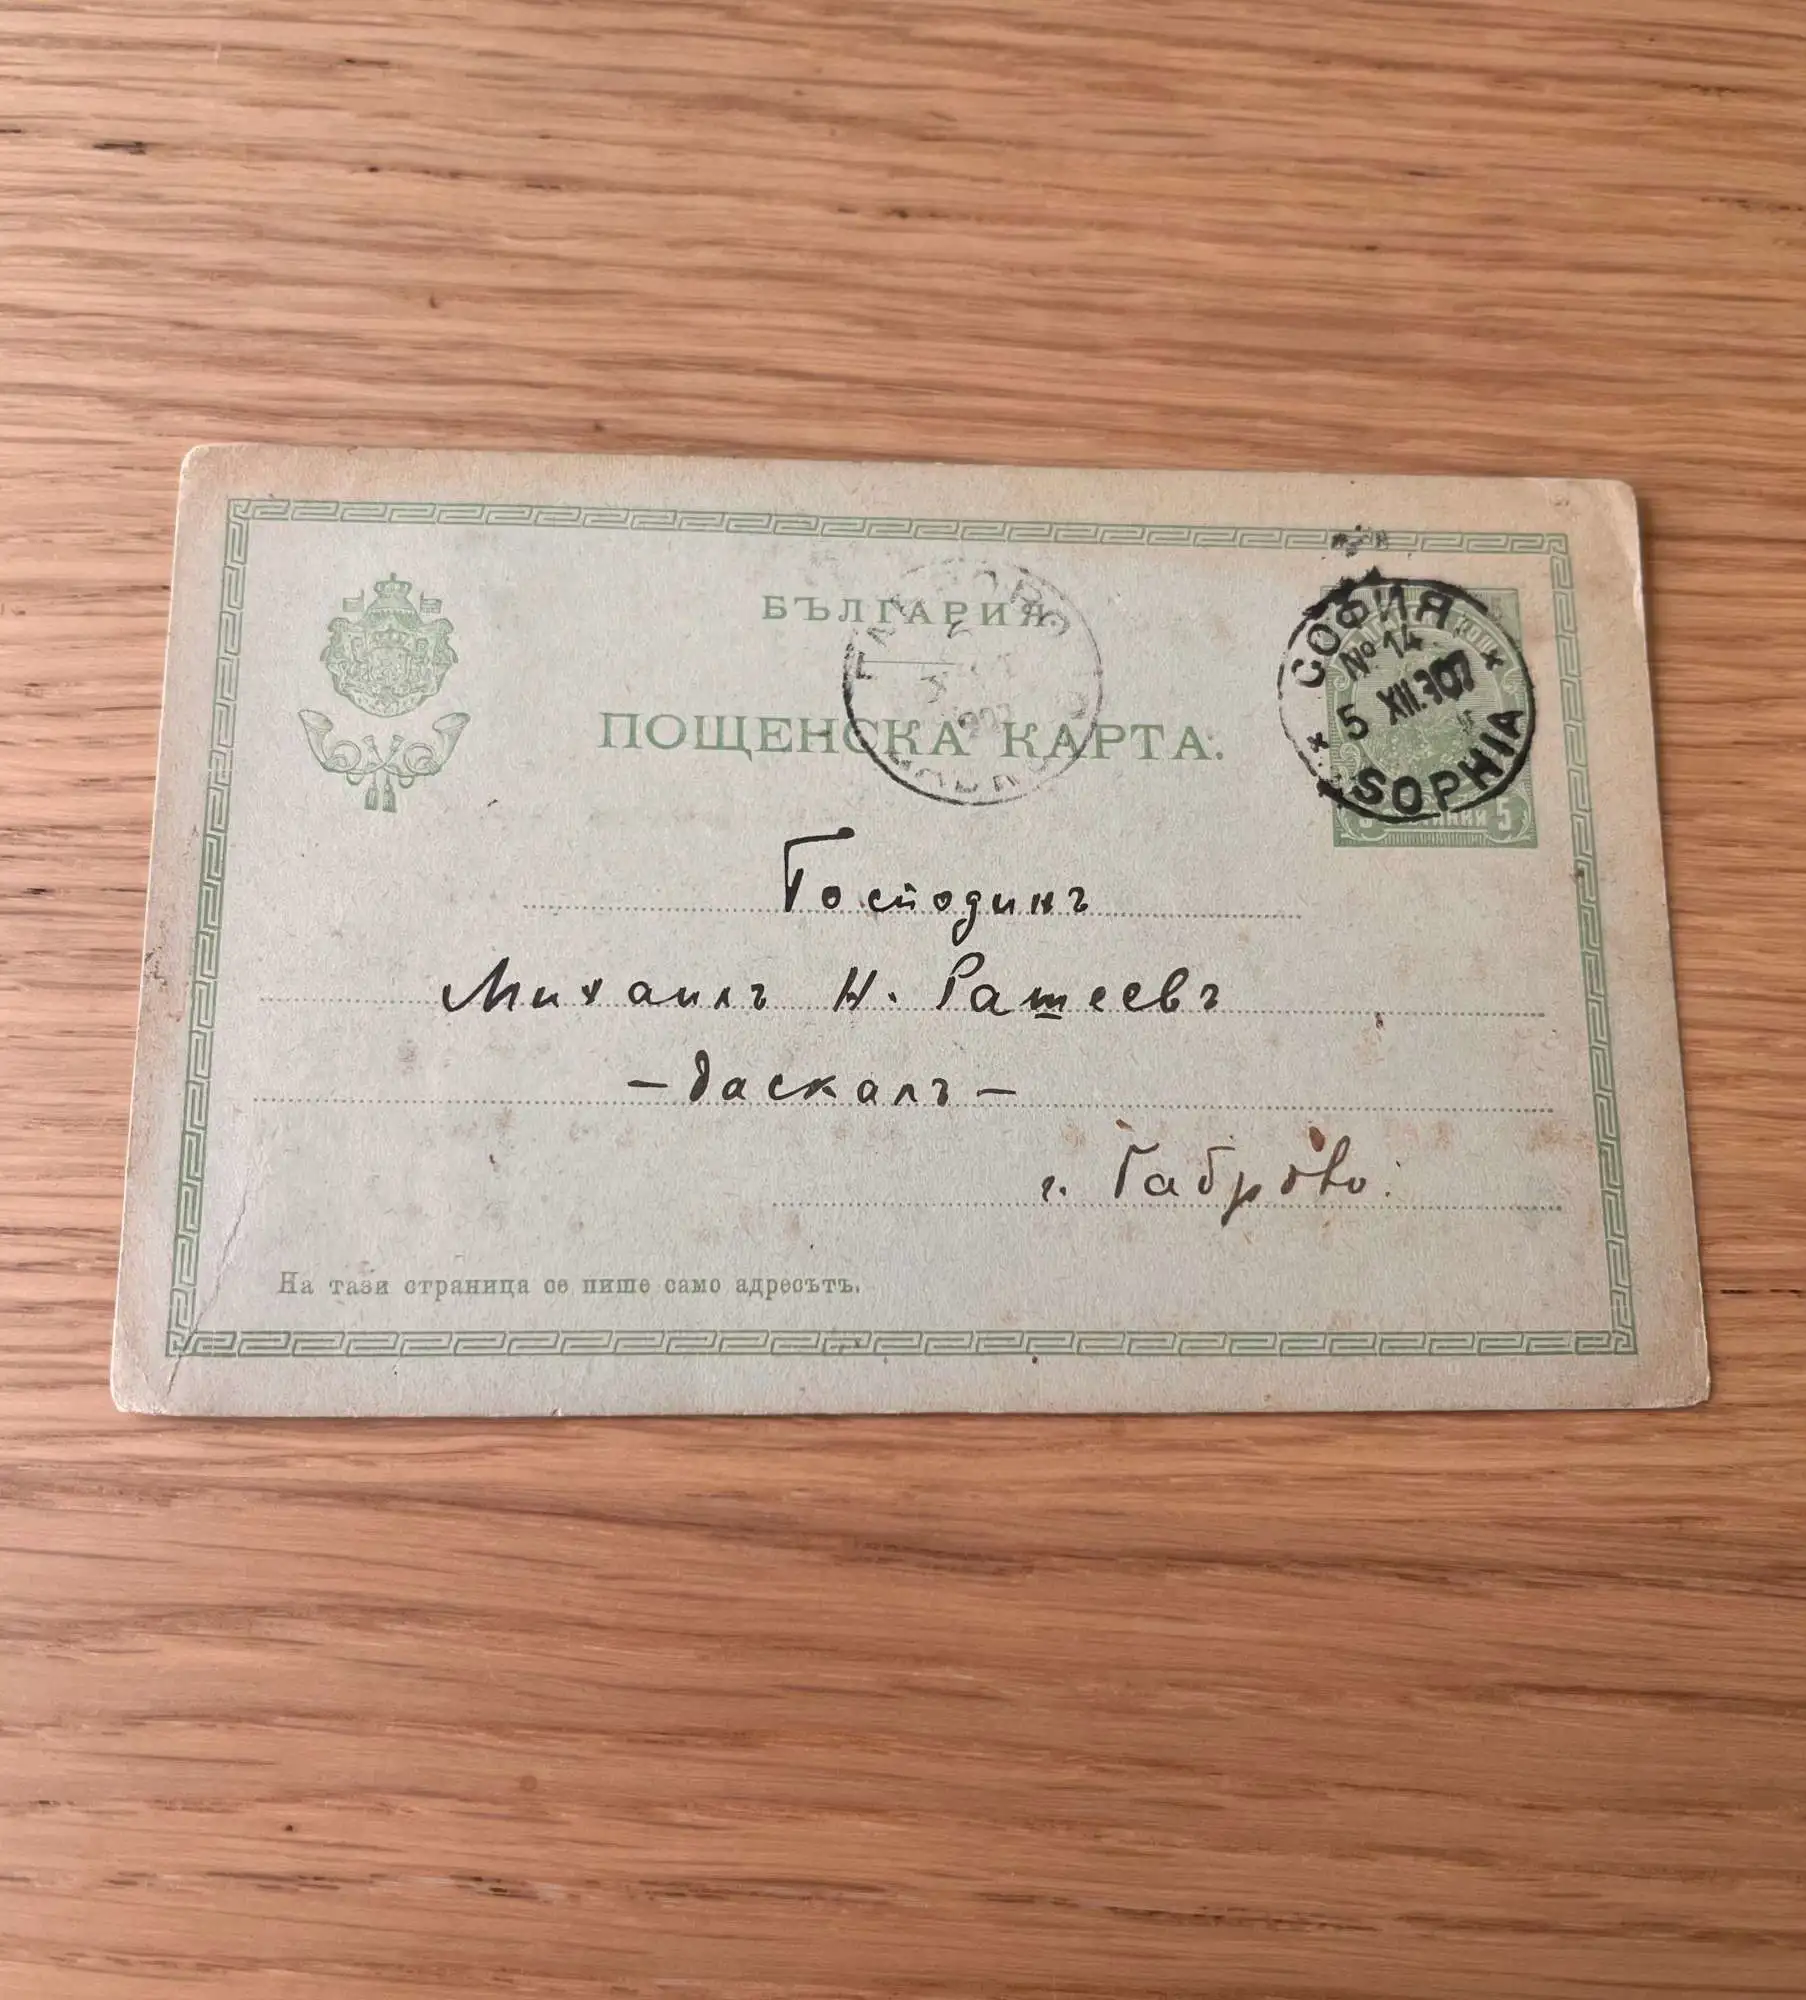 БЪЛГАРИЯ
ПОЩЕНСКА КАРТА.
СОФИЯ
No 14
5 XII.07
SOPHIA
5
Господинъ
Михаилъ Н. Рашеевъ
– даскалъ –
г. Габрово.
На тази страница се пише само адресътъ.